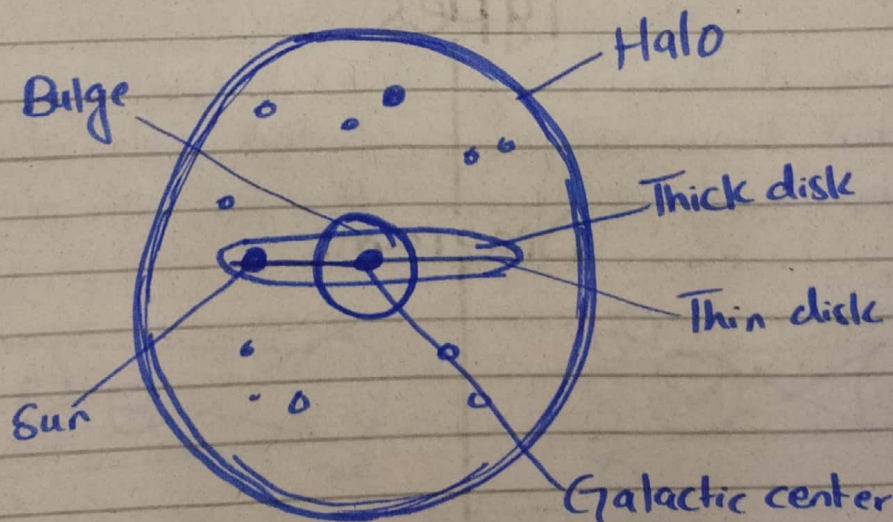 Halo
Bulge
Thick disk
Thin disk
Sun
Galactic center